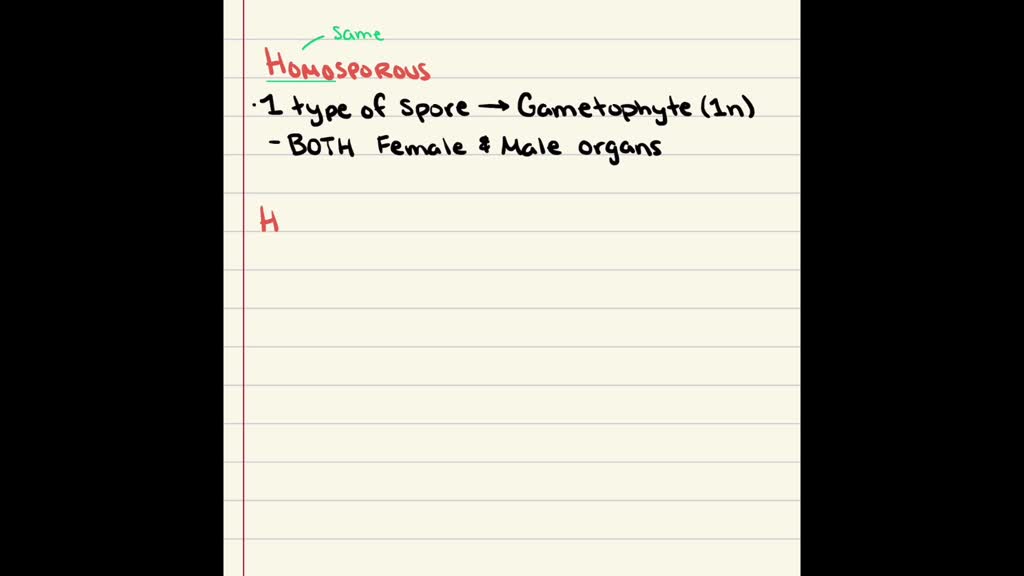 Same
HOMOSPOROUS
·1 type of spore → Gametophyte (1n)
- BOTH Female & Male organs
H